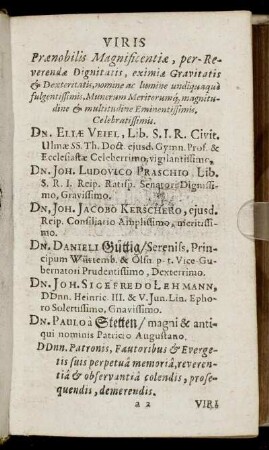 VIRIS
Prænobilis Magnificentiæ, per-Re-
verendæ Dignitatis, eximiæ Gravitatis
& Dexteritatis, nomine ac lumine undiquaquà
fulgentissimis. Munerum Meritorumq; magnitu-
dine & multitudine Eminentissimis,
Celebratissimis.
DN. ELIÆ VEIEL, Lib. S. I. R. Civit.
Ulmæ SS. Th. Doct. ejusd. Gymn. Prof. &
Ecclesiastæ Celeberrimo, vigilantissimo.
DN. JOH. LUDOVICO PRASCHIO, Lib.
S. R. I. Reip. Ratisp. Senatori Dignissi-
mo, Gravissimo.
DN. JOH. JACOBO KERSCHERO, ejusd.
Reip. Consiliario Amplissimo, meritissi-
mo.
DN. DANIELI Güttig/ Sereniss. Prin-
cipum Würtemb. & Ölsn. p. t. Vice-Gu-
bernatori Prudentissimo, Dexterrimo.
DN. JOH. SIGEFREDO LEHMANN,
DDnn. Heinric. III. & V. Jun. Lin. Epho-
ro Solertissimo, Gnavissimo.
DN. PAULO à Stetten/ magni & anti-
qui nominis Patricio Augustano.
DDnn. Patronis, Fautoribus & Everge-
tis suis perpetuâ memoriâ, reveren-
tiâ & observantiâ colendis, prose-
quendis, demerendis.
a 2 VIRI-